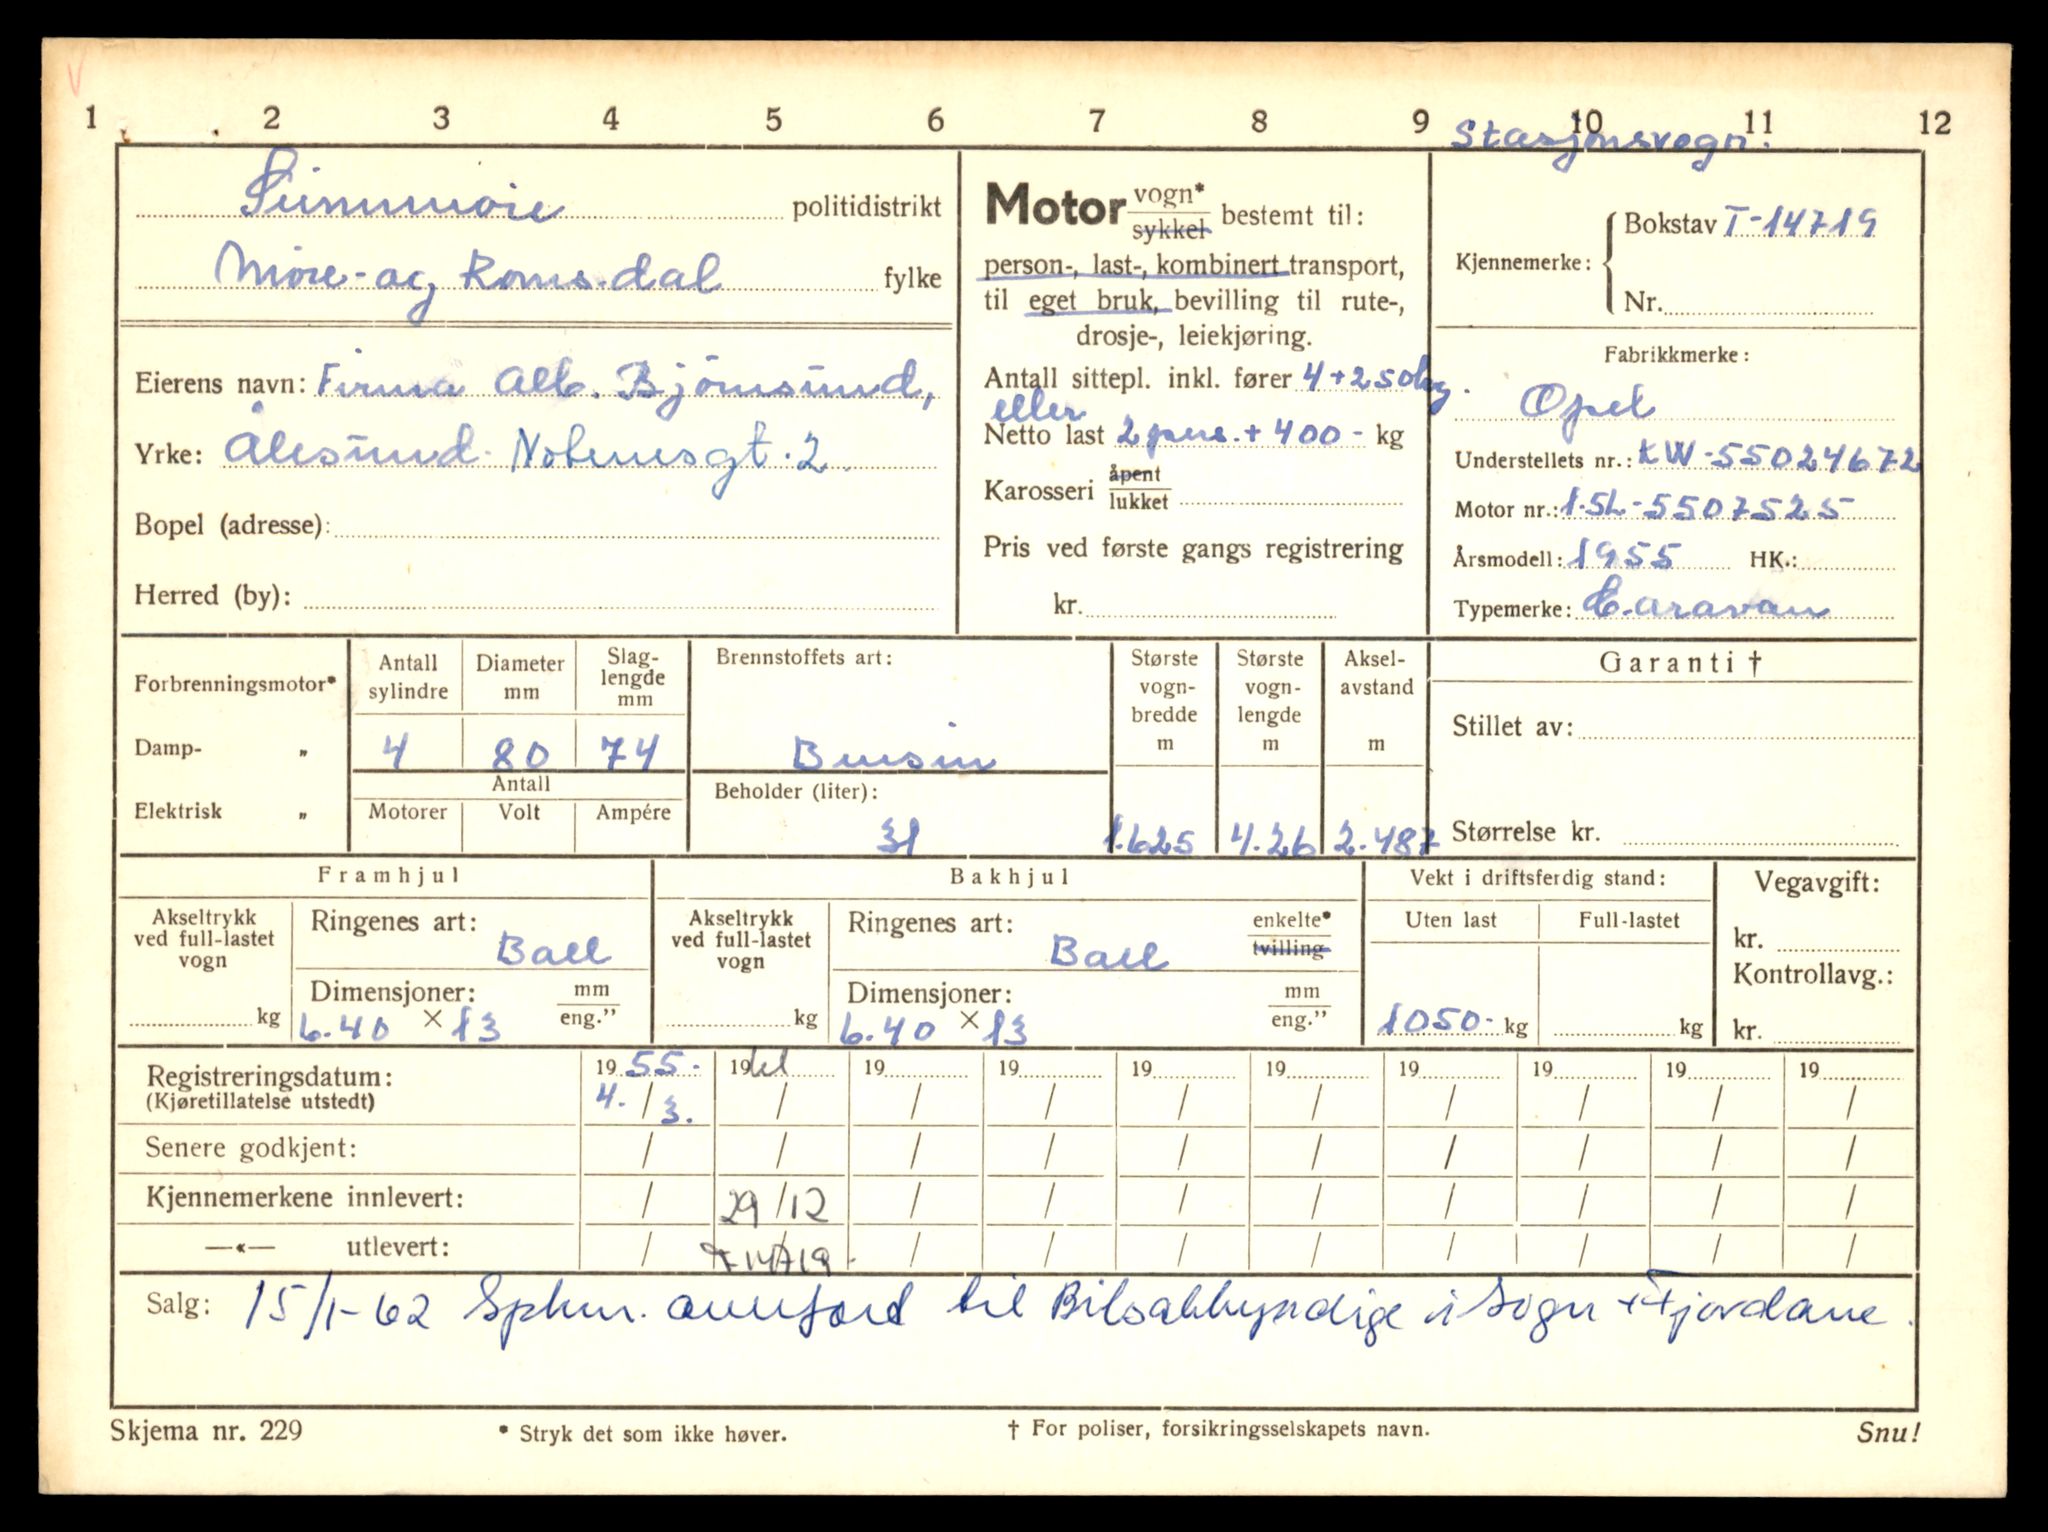 1 2 3 4 5 6 7 8 9 10 11 12
Stasjonsvogn.
Sunnmøre politidistrikt
Møre- og Romsdal fylke
Eierens navn: Firma Alb. Bjømsund,
Yrke: Ålesund. Notenesgt. 2
Bopel (adresse):
Herred (by):
Motor vogn* / sykkel bestemt til:
person-, last-, kombinert transport,
til eget bruk, bevilling til rute-,
drosje-, leiekjøring.
Antall sittepl. inkl. fører 4+250kg.
eller
Netto last 2 pers. + 400- kg
Karosseri åpent / lukket
Pris ved første gangs registrering
kr.
Kjennemerke: Bokstav T-14719
Nr.
Fabrikkmerke:
Opel
Understellets nr.: KW-55024672
Motor nr.: 1.5L-5507525
Årsmodell: 1955 HK.:
Typemerke: Caravan
Forbrenningsmotor*
Damp- „
Elektrisk „
Antall sylindre Diameter mm Slag-lengde mm
4 80 74
Antall
Motorer Volt Ampére
Brennstoffets art:
Bensin
Beholder (liter):
31
Største vogn-bredde m Største vogn-lengde m Aksel-avstand m
1.625 4.26 2.487
Garanti †
Stillet av:
Størrelse kr.
Framhjul
Akseltrykk ved full-lastet vogn
kg
Ringenes art:
Ball
Dimensjoner: mm / eng.”
6.40 × 13
Bakhjul
Akseltrykk ved full-lastet vogn
kg
Ringenes art: enkelte* / tvilling
Ball
Dimensjoner: mm / eng.”
6.40 × 13
Vekt i driftsferdig stand:
Uten last Full-lastet
1050- kg kg
Vegavgift:
kr.
Kontrollavg.:
kr.
Registreringsdatum: 19 55. 19 61 19 19 19 19 19 19 19 19
(Kjøretillatelse utstedt) 4. / 3. / / / / / / / / /
Senere godkjent: / / / / / / / / / /
Kjennemerkene innlevert: / 29/12 / / / / / / / /
—«— utlevert: / T 14719 - / / / / / / / /
Salg: 15/1-62 Spkm. overført til Bilsakkyndige i Sogn + Fjordane.
Skjema nr. 229 * Stryk det som ikke høver. † For poliser, forsikringsselskapets navn. Snu!